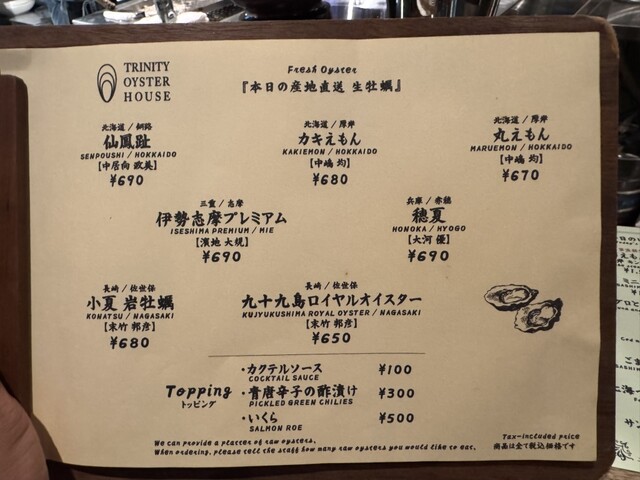 TRINITY
OYSTER
HOUSE
Fresh Oyster
『本日の産地直送 生牡蠣』
北海道 / 釧路
仙鳳趾
SENPOUSHI / HOKKAIDO
【中居向 政美】
¥690
北海道 / 厚岸
カキえもん
KAKIEMON / HOKKAIDO
【中嶋 均】
¥680
北海道 / 厚岸
丸えもん
MARUEMON / HOKKAIDO
【中嶋 均】
¥670
三重 / 志摩
伊勢志摩プレミアム
ISESHIMA PREMIUM / MIE
【濱地 大規】
¥690
兵庫 / 赤穂
穂夏
HONOKA / HYOGO
【大河 優】
¥690
長崎 / 佐世保
小夏 岩牡蠣
KONATSU / NAGASAKI
【末竹 邦彦】
¥680
長崎 / 佐世保
九十九島ロイヤルオイスター
KUJYUKUSHIMA ROYAL OYSTER / NAGASAKI
【末竹 邦彦】
¥650
Topping
トッピング
・カクテルソース ¥100
COCKTAIL SAUCE
・青唐辛子の酢漬け ¥300
PICKLED GREEN CHILIES
・いくら ¥500
SALMON ROE
We can provide a platter of raw oysters.
When ordering, please tell the staff how many raw oysters you would like to eat.
Tax-included price
商品は全て税込価格です